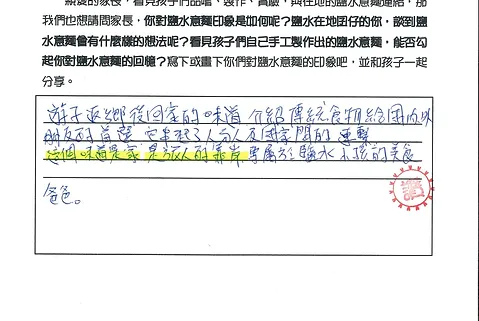 親愛的家長，看見孩子們品嚐、製作、實驗，與在地的鹽水意麵連結，那
我們也想請問家長，你對鹽水意麵印象是如何呢？鹽水在地囝仔的你，談到鹽
水意麵會有什麼樣的想法呢？看見孩子們自己手工製作出的鹽水意麵，能否勾
起你對鹽水意麵的回憶？寫下或畫下你們對鹽水意麵的印象吧，並和孩子一起
分享。
遊子返鄉後回家的味道 介紹傳統食物給國內外
朋友的首選 它串起了人與人及國家間的連繫
這個味道是家 是旅人的靠岸 專屬於鹽水小孩的美食
爸爸。